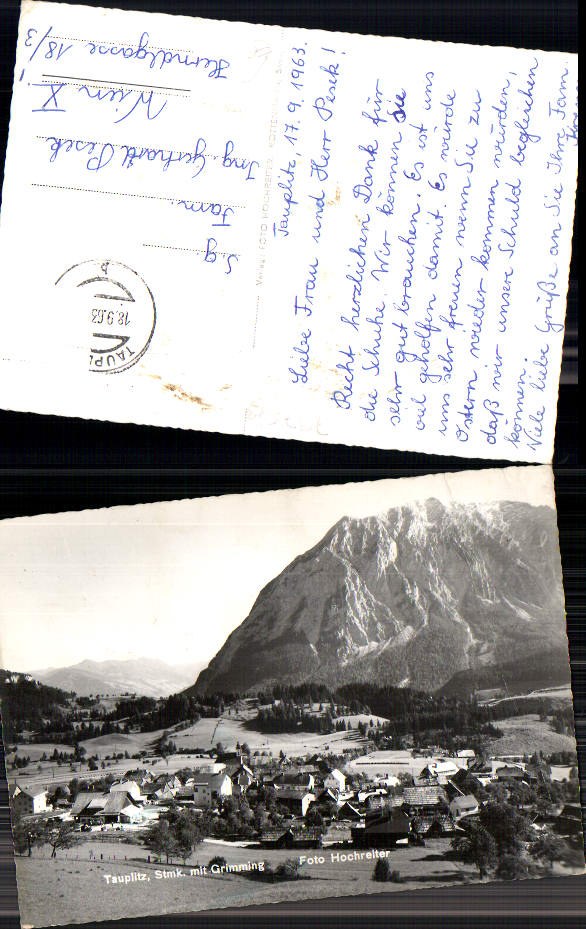 Tauplitz, 17.9.1963.
Liebe Frau und Herr Pesek!
Recht herzlichen Dank für
die Schuhe. Wir können Sie
sehr gut brauchen. Es ist uns
viel geholfen damit. Es würde
uns sehr freuen wenn Sie zu
Ostern wieder kommen würden,
daß wir unsere Schuld begleichen
können.
Viele liebe Grüße an Sie Ihre Fam.
Verlag: FOTO HOCHREITER
S.g.
Fam.
Ing Gerhard Pesek
Wien X.
Herndlgasse 18/3
TAUPL
18.9.63
Tauplitz, Stmk. mit Grimming
Foto Hochreiter